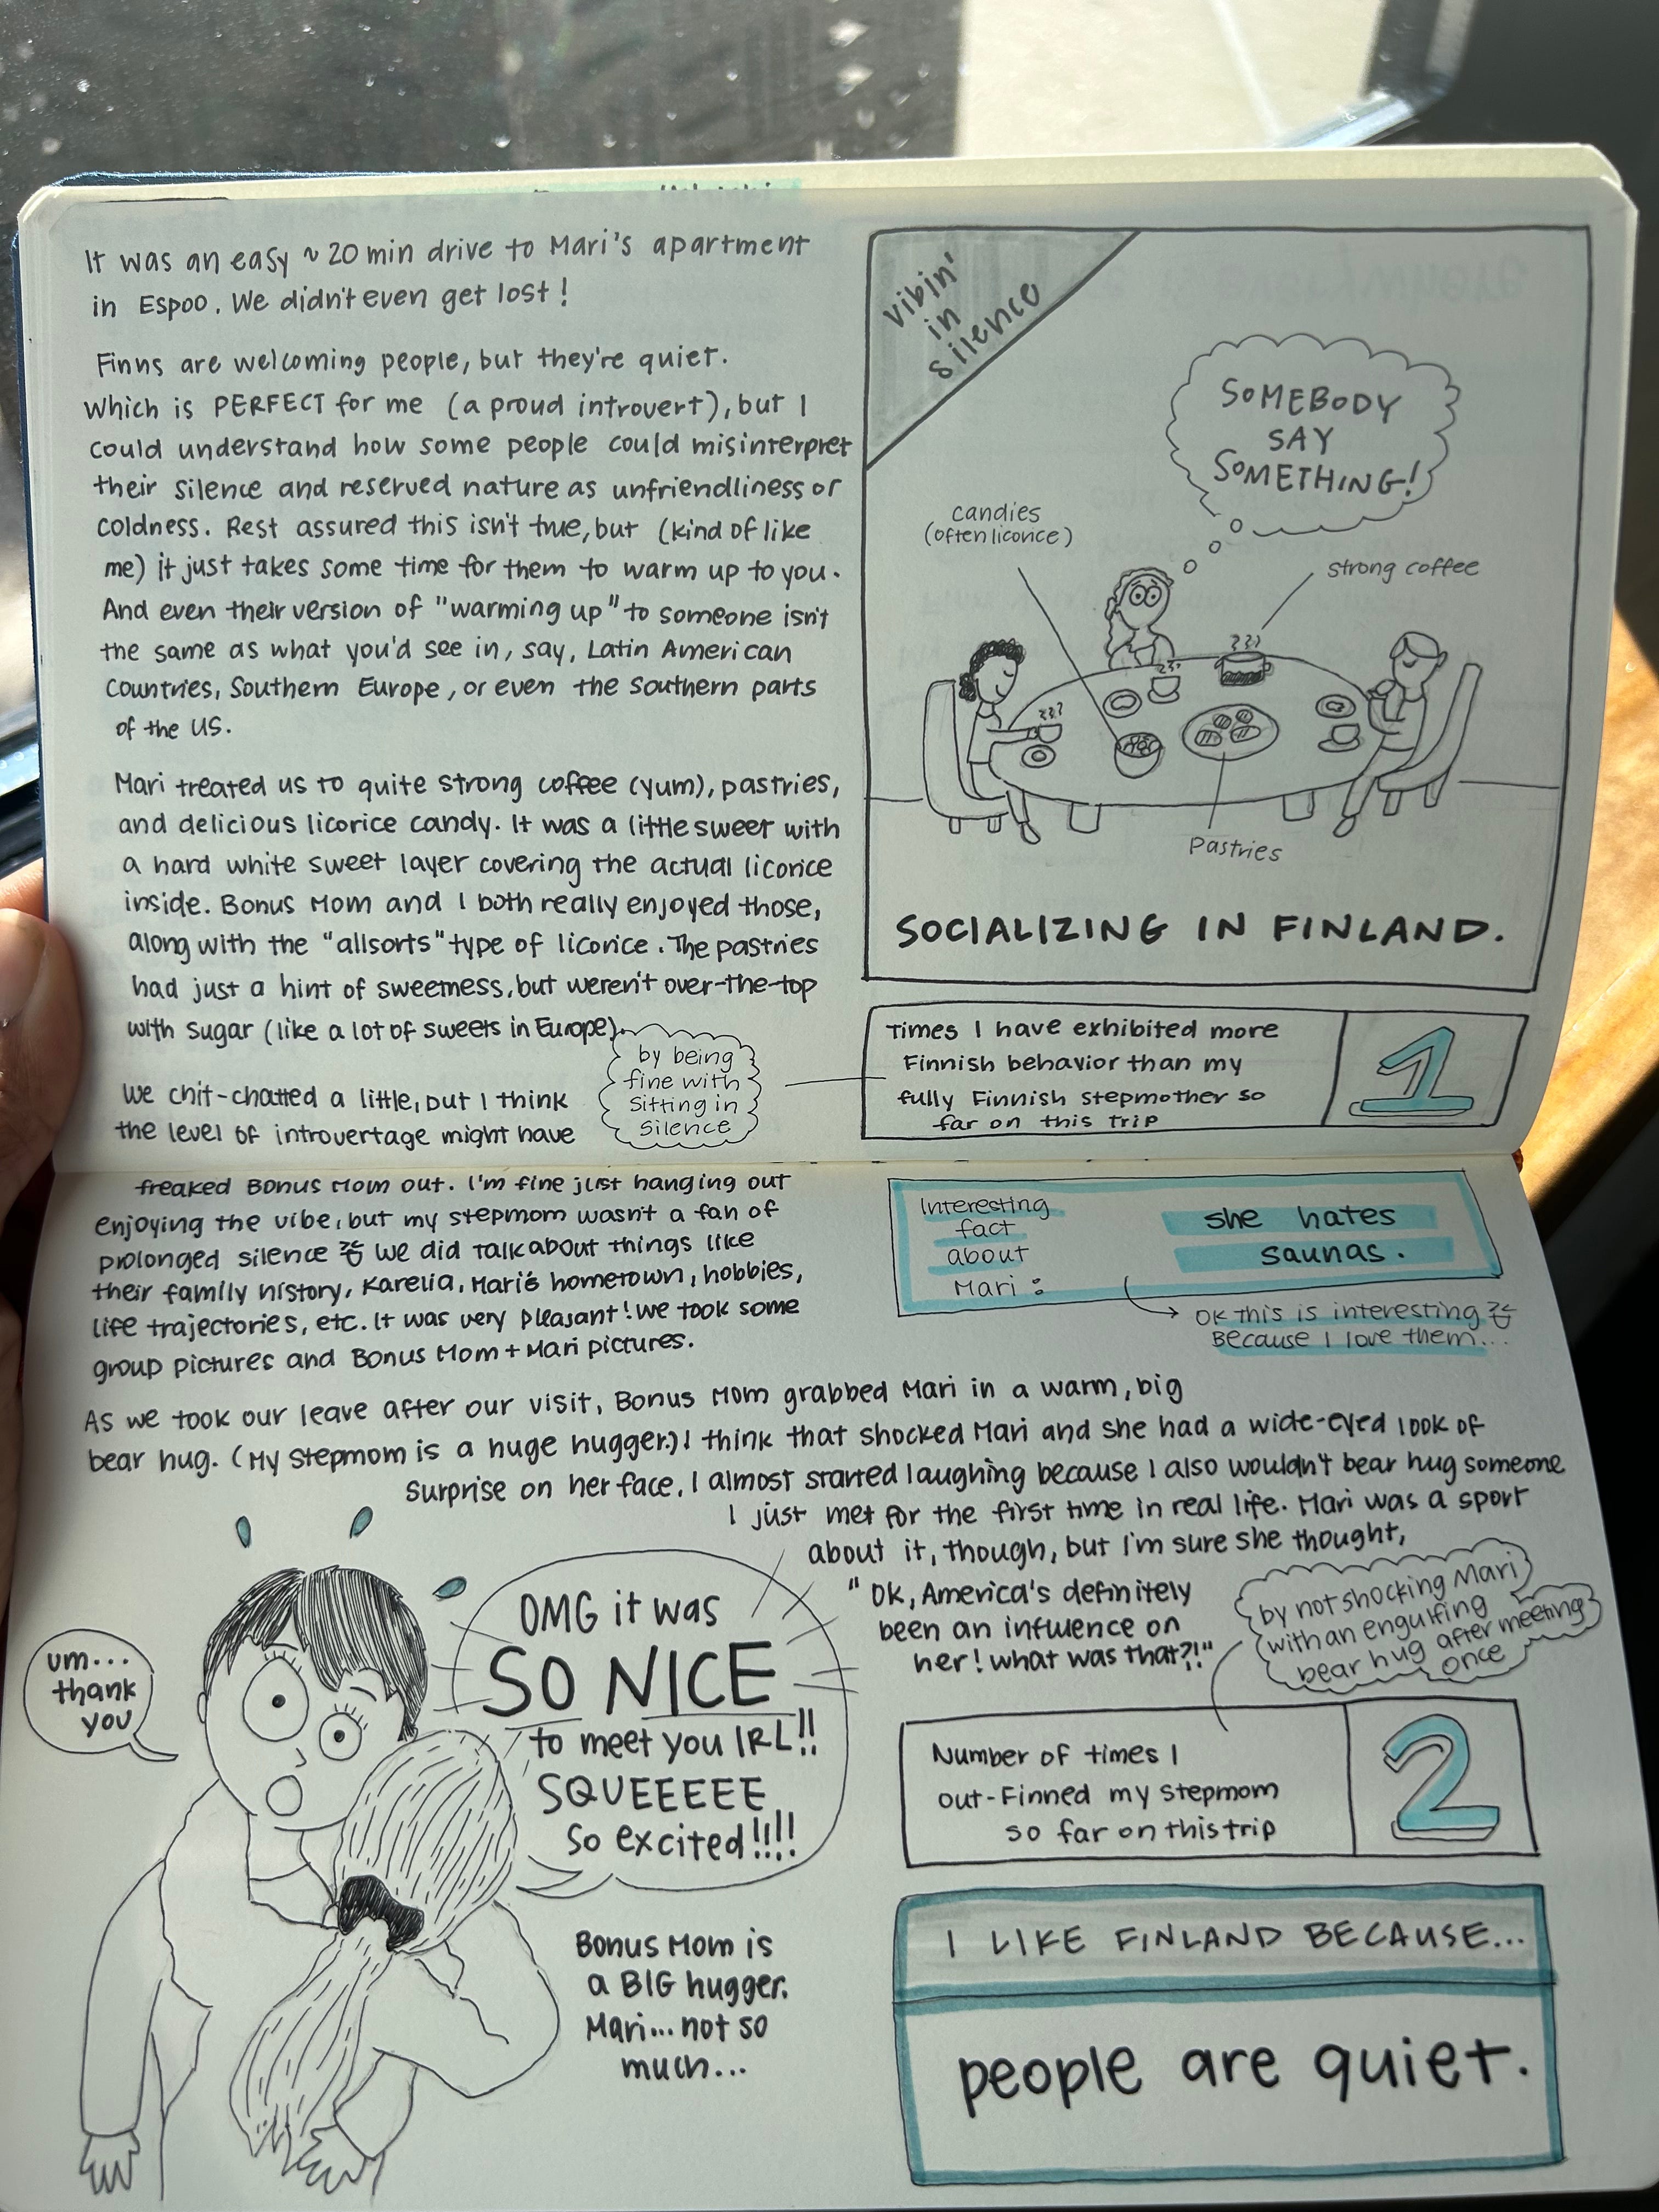 It was an easy ~ 20 min drive to Mari's apartment
in Espoo. We didn't even get lost!
Finns are welcoming people, but they're quiet.
Which is PERFECT for me (a proud introvert), but I
could understand how some people could misinterpret
their silence and reserved nature as unfriendliness or
coldness. Rest assured this isn't true, but (kind of like
me) it just takes some time for them to warm up to you.
And even their version of "warming up" to someone isn't
the same as what you'd see in, say, Latin American
countries, Southern Europe, or even the Southern parts
of the US.
Mari treated us to quite strong coffee (yum), pastries,
and delicious licorice candy. It was a little sweet with
a hard white sweet layer covering the actual licorice
inside. Bonus Mom and I both really enjoyed those,
along with the "allsorts" type of licorice. The pastries
had just a hint of sweetness, but weren't over-the-top
with sugar (like a lot of sweets in Europe).
We chit-chatted a little, but I think
the level of introvertage might have
vibin'
in
silence
SOMEBODY
SAY
SOMETHING!
candies
(often licorice)
strong coffee
Pastries
SOCIALIZING IN FINLAND.
by being
fine with
sitting in
silence
Times I have exhibited more
Finnish behavior than my
fully Finnish stepmother so
far on this trip
1
freaked Bonus Mom out. I'm fine just hanging out
enjoying the vibe, but my stepmom wasn't a fan of
prolonged silence We did talk about things like
their family history, Karelia, Mari's hometown, hobbies,
life trajectories, etc. It was very pleasant! We took some
group pictures and Bonus Mom + Mari pictures.
Interesting
fact
about
Mari:
she hates
saunas.
OK this is interesting
Because I love them...
As we took our leave after our visit, Bonus Mom grabbed Mari in a warm, big
bear hug. (My stepmom is a huge hugger.) I think that shocked Mari and she had a wide-eyed look of
surprise on her face. I almost started laughing because I also wouldn't bear hug someone
I just met for the first time in real life. Mari was a sport
about it, though, but I'm sure she thought,
"OK, America's definitely
been an influence on
her! What was that?!"
um...
thank
you
OMG it was
SO NICE
to meet you IRL!!
SQUEEEEE
so excited!!!!
Bonus Mom is
a BIG hugger.
Mari... not so
much...
by not shocking Mari
with an engulfing
bear hug after meeting
once
Number of times I
out-Finned my stepmom
so far on this trip
2
I LIKE FINLAND BECAUSE...
people are quiet.